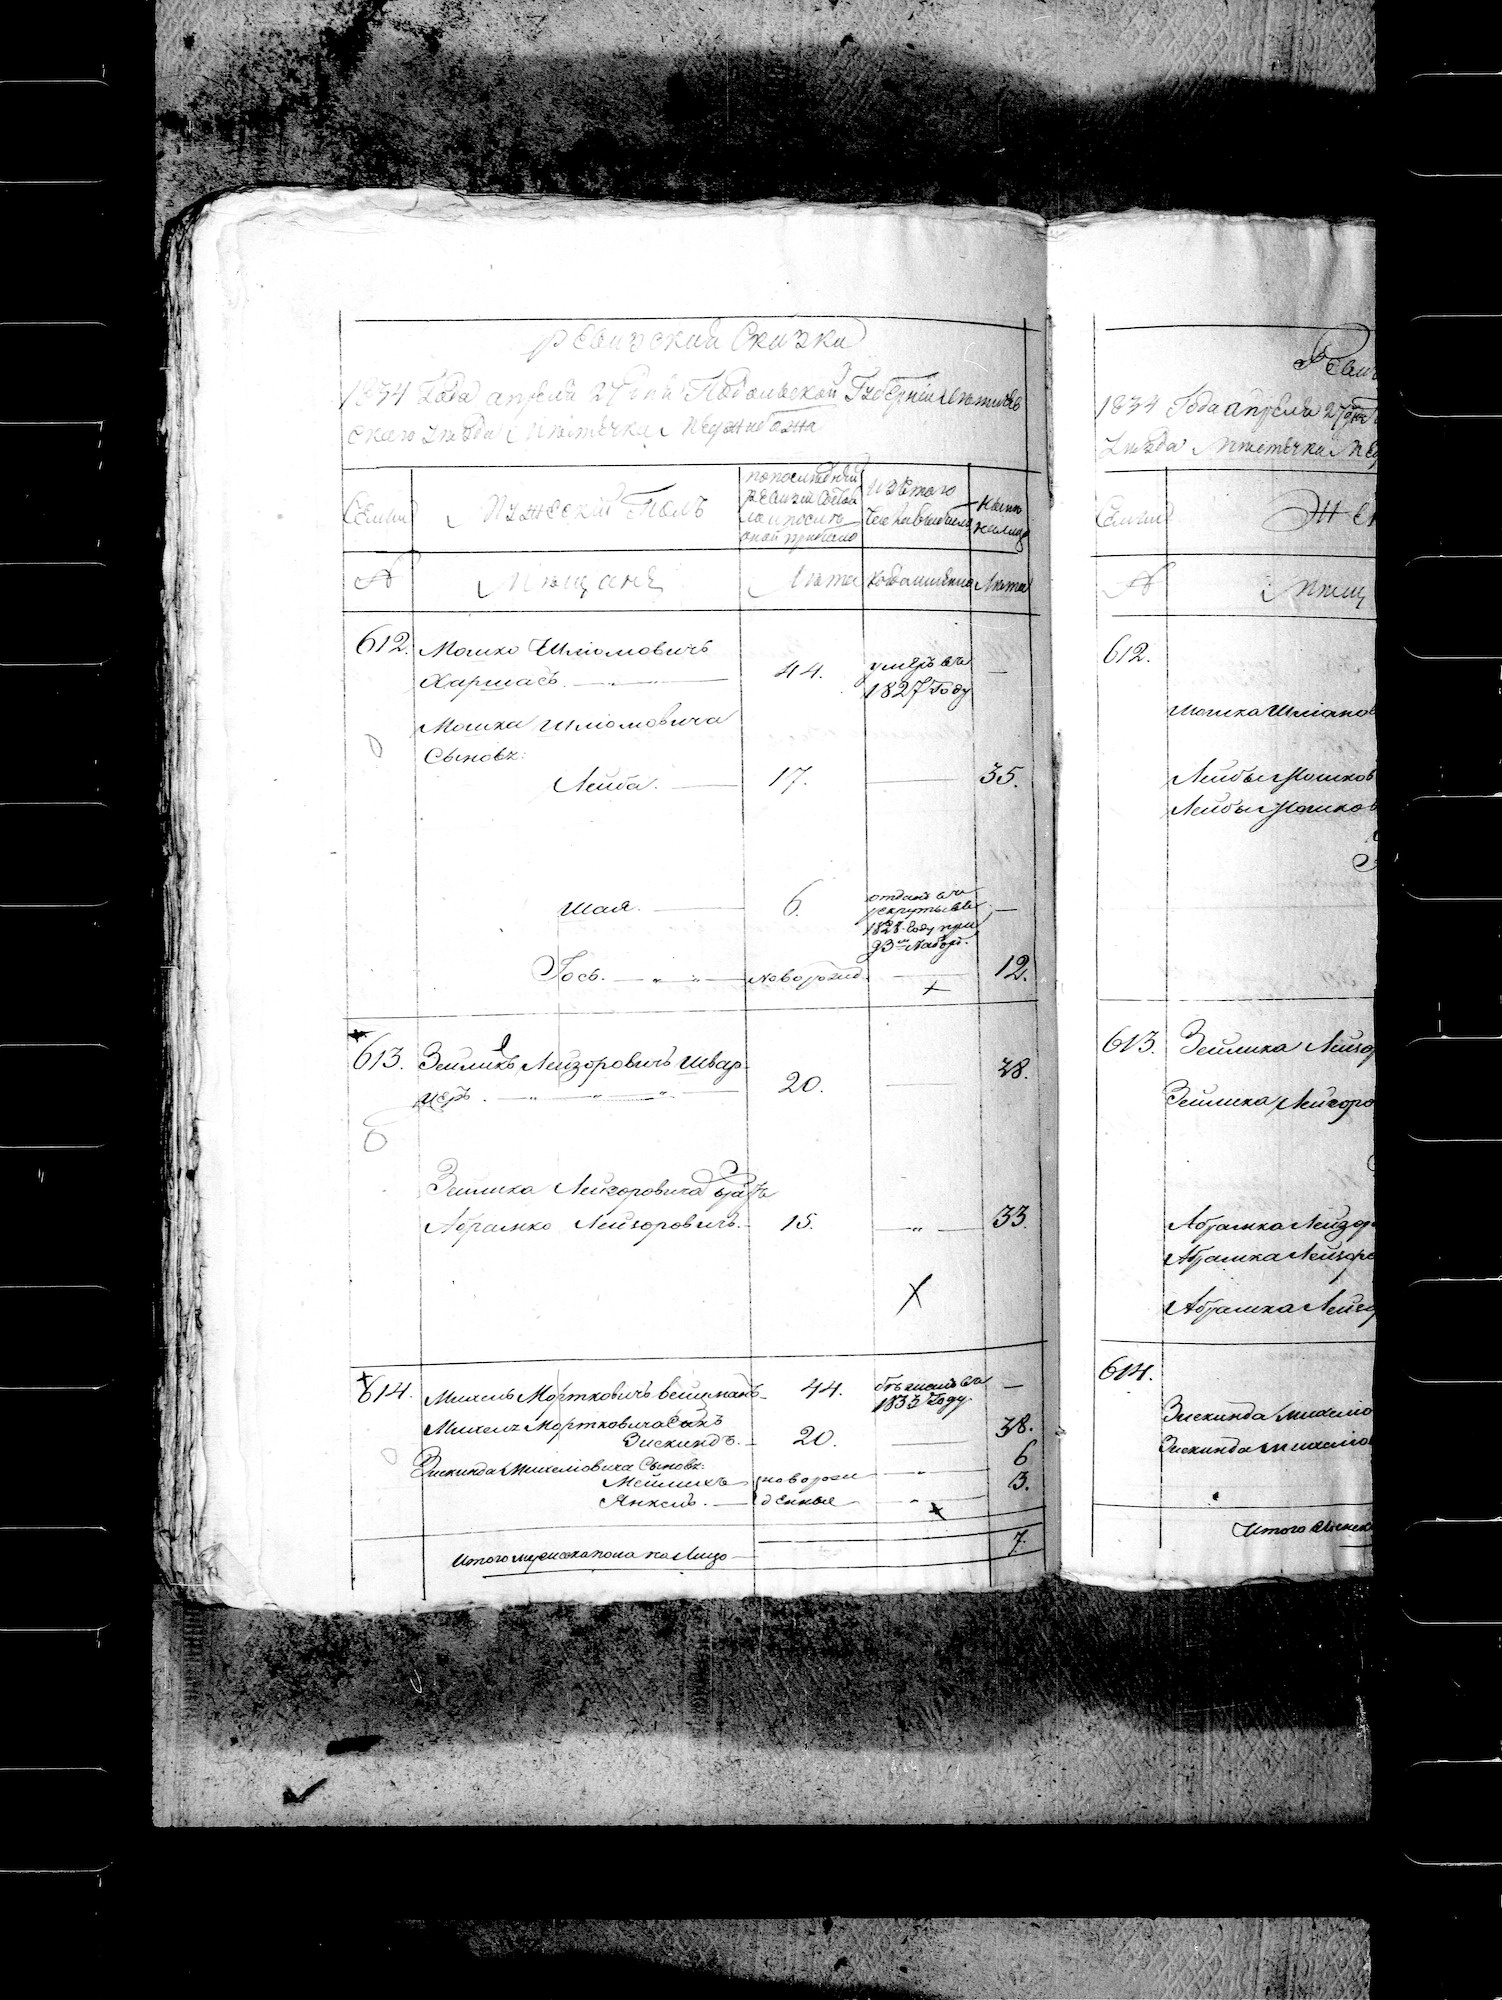 Ревизский Сказки
1834 Года апреля 27 дня Подольской Губернии Летичев
скаго уезда Местечка Межибожа
Семьи
Мужеский Полъ
по последней
ревизии состоя
ло и после
оной прибыло
Изътого
числа выбыло
Ныне
налицо
№
Мещане
Лета
когда именно
Лета
612. Мошко Шліомовичъ
Хармасъ. 44. умеръ въ
1827 Году —
Мошка Шліомовича
Сыновъ:
Лейба. 17. — 35.
Шая. 6. отданъ въ
рекруты въ
1828 Году при
93м Наборе. —
Гось. — " — " — новорожд. — 12.
613. Зейликъ Лейзоровичъ Швар
церъ. — " — " — " — 20. — 38.
Зейлика Лейзоровича братъ
Абрамко Лейзоровичъ. 15. — " — 33.
614. Михель Мортковичъ Вейцманъ 44. бъжалъ въ
1833 Году. —
Михеля Мортковича Сынъ
Зискиндъ. 20. — 38.
Зискинда Михеліовича Сыновъ:
Мейлихъ новорож — " — 6
Янкель. денные — " — 3.
Итого мужеска пола налицо — 7.
1834 Года апреля 27 дня
уезда Местечка Ме
Семьи
Же
№
Мещ
612.
Мошка Шліомов
Лейбы Мошков
Лейбы Мошков
613. Зейлика Лейзор
Зейлика Лейзоро
Абрамка Лейзор
Абрамка Лейзоро
Абрамка Лейзор
614.
Зискинда Михеліо
Зискинда Михеліо
Итого Женск